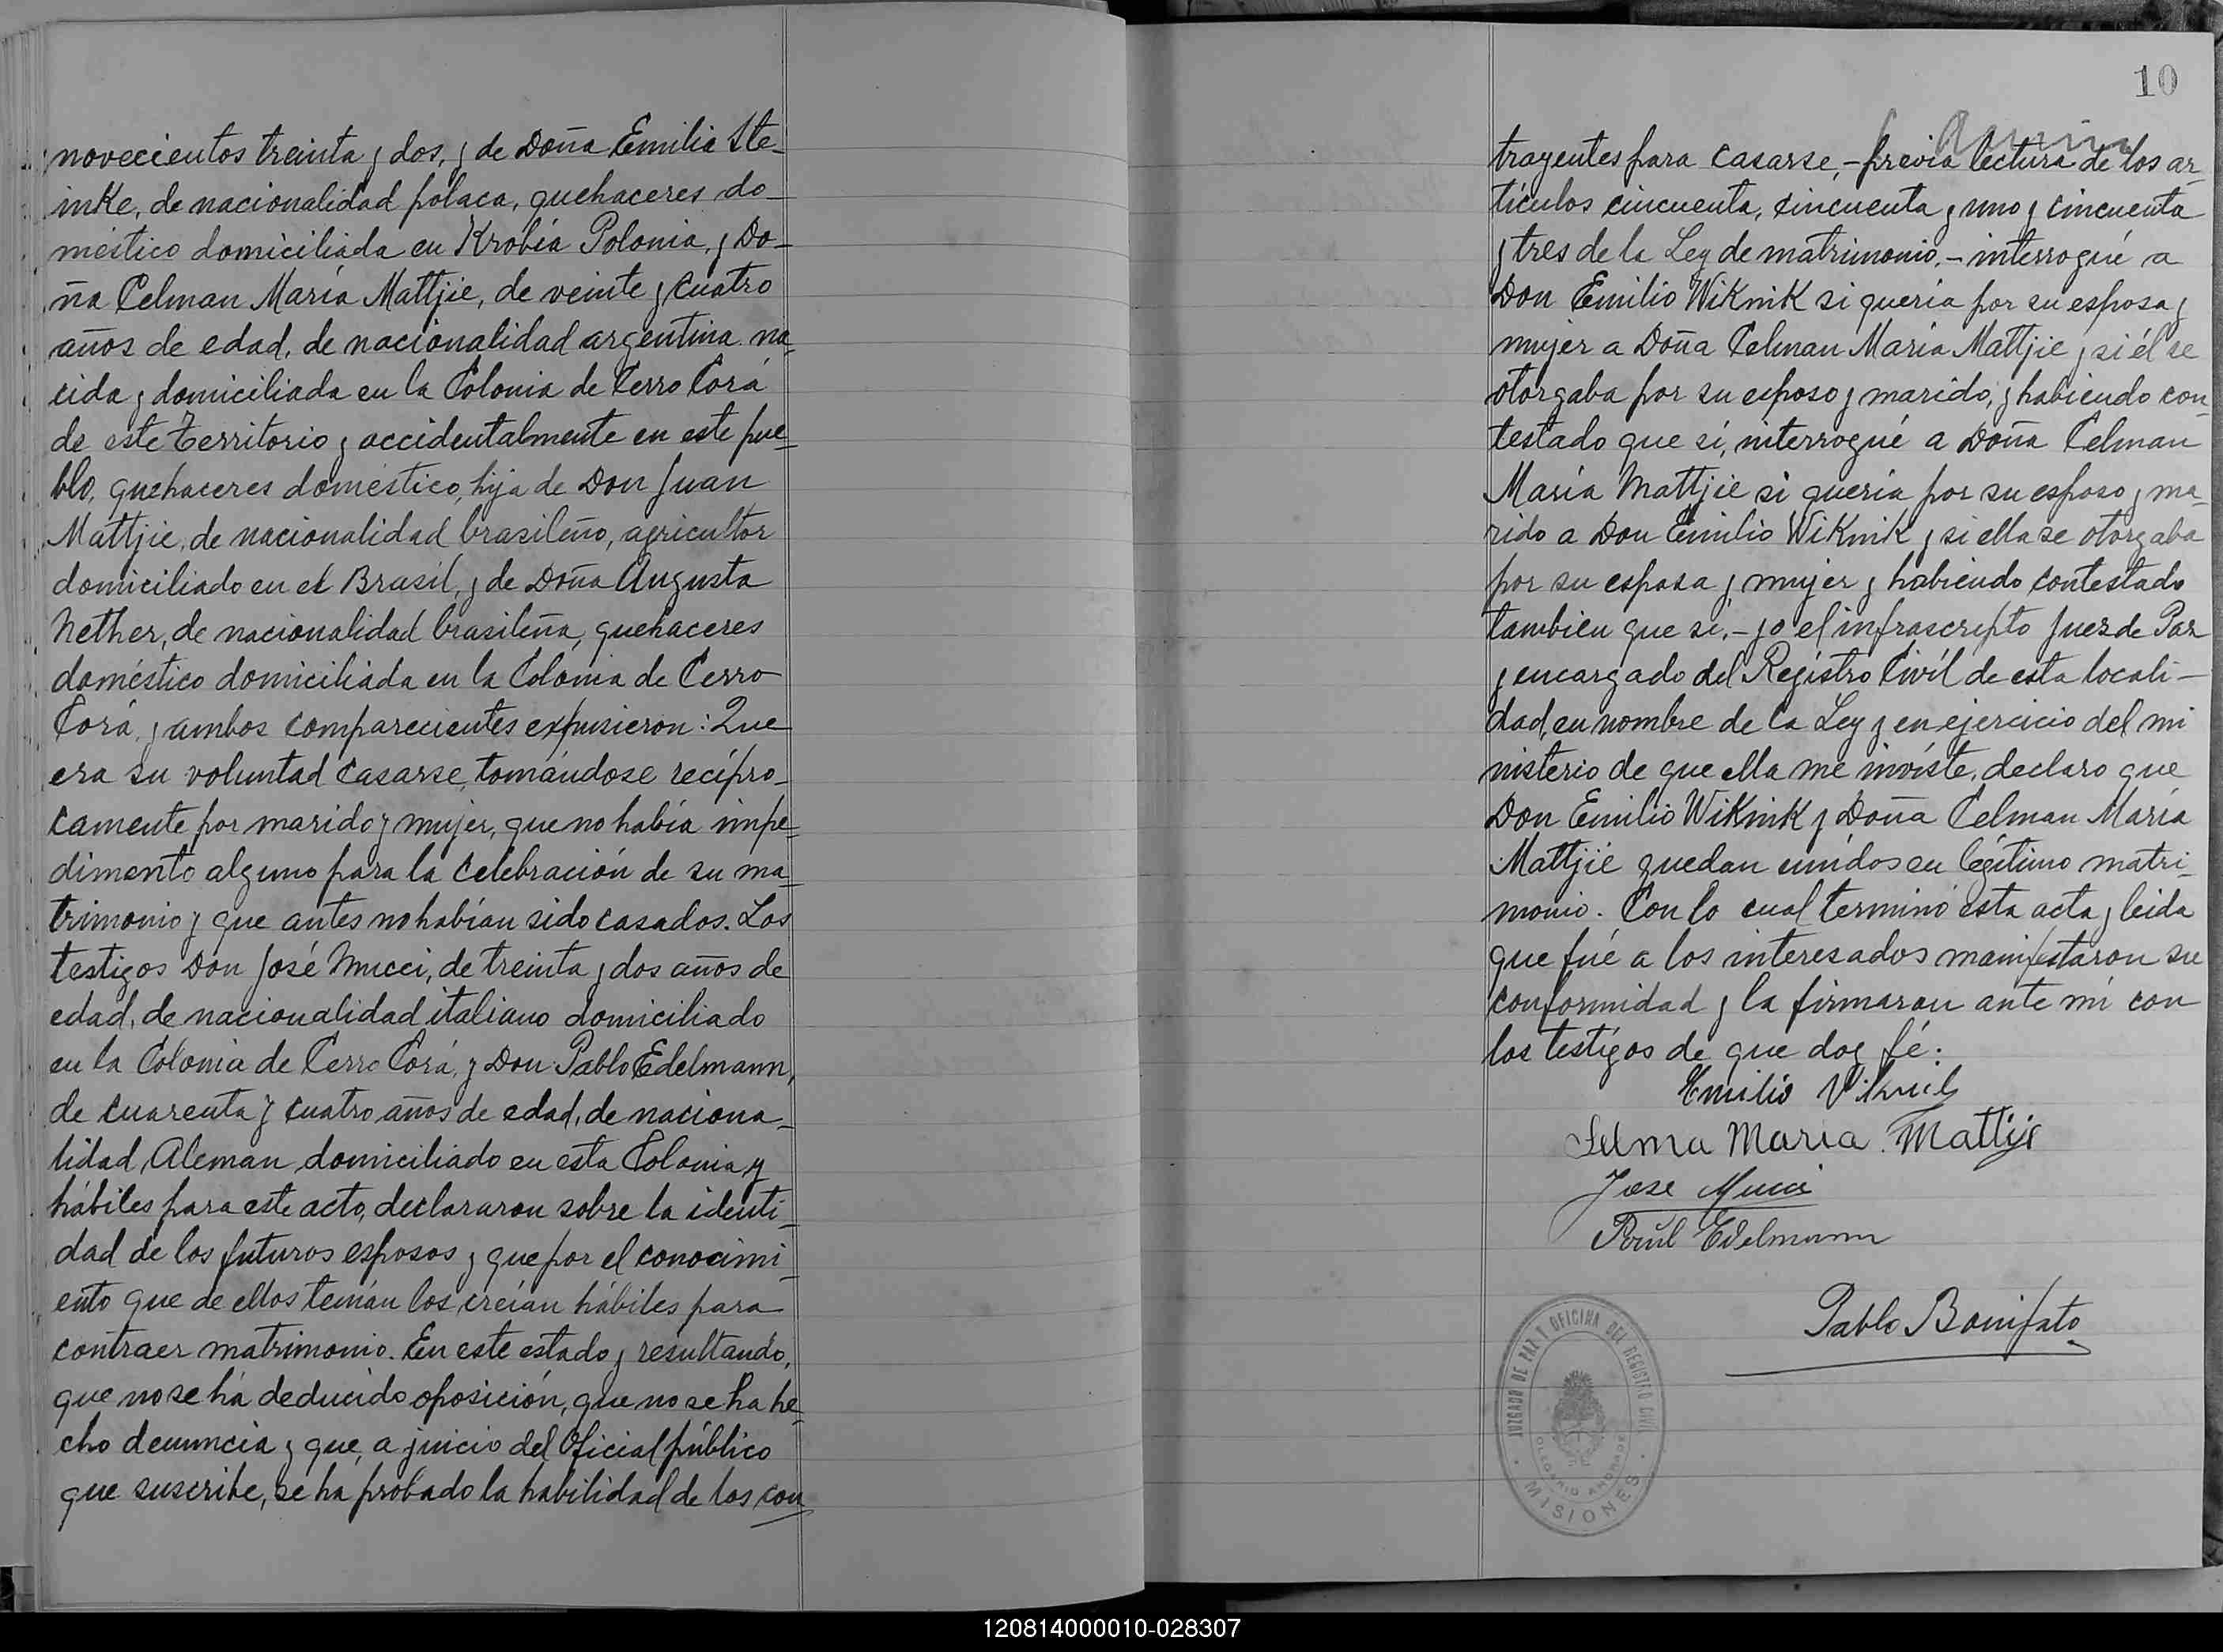 novecientos treinta y dos, y de Doña Emilia Ste-
inke, de nacionalidad polaca, quehaceres do-
méstico domiciliada en Krobia Polonia, y Do-
ña Celman María Mattjie, de veinte y cuatro
años de edad, de nacionalidad argentina na-
cida y domiciliada en la Colonia de Cerro Corá
de este Territorio y accidentalmente en este pue-
blo, quehaceres doméstico, hija de Don Juan
Mattjie, de nacionalidad brasileño, agricultor
domiciliado en el Brasil, y de Doña Augusta
Nether, de nacionalidad brasileña, quehaceres
doméstico domiciliada en la Colonia de Cerro
Corá, y ambos comparecientes expusieron: Que
era su voluntad casarse, tomándose recípro-
camente por marido y mujer, que no había impe-
dimento alguno para la celebración de su ma-
trimonio y que antes no habían sido casados. Los
testigos Don José Mucci, de treinta y dos años de
edad, de nacionalidad italiano domiciliado
en la Colonia de Cerro Corá, y Don Pablo Edelmann,
de cuarenta y cuatro años de edad, de naciona-
lidad Aleman domiciliado en esta Colonia y
hábiles para este acto, declararon sobre la identi-
dad de los futuros esposos y que por el conocimi-
ento que de ellos tenían los creían hábiles para
contraer matrimonio. En este estado y resultando,
que no se há deducido oposición, que no se ha he-
cho denuncia y que, a juicio del Oficial público
que suscribe, se há probado la habilidad de los con
10
trayentes para casarse,- previa lectura de los ar-
tículos cincuenta, cincuenta y uno y cincuenta
y tres de la Ley de matrimonio.- interrogué a
Don Emilio WiKnik si quería por su esposa y
mujer a Doña Celman María Mattjie y si él se
otorgaba por su esposo y marido, y habiendo con-
testado que sí, interrogué a Doña Celman
María Mattjie si quería por su esposo y ma-
rido a Don Emilio WiKnik y si ella se otorgaba
por su esposa y mujer y habiendo contestado
tambien que sí.- yo el infrascripto Juez de Paz
y encargado del Registro Civíl de esta locali-
dad, en nombre de la Ley y en ejercicio del mi
nisterio de que ella me invíste, declaro que
Don Emilio WiKnik y Doña Celman María
Mattjie quedan unidos en legítimo matri-
monio. Con lo cual terminó esta acta y leida
que fué a los interesados manifestaron su
conformidad y la firmaron ante mí con
los testigos de que doy fé:
Emilio Viknik
Selma Maria Mattije
Jose Mucci
Paul Edelmann
Pablo Bonifato
JUZGADO DE PAZ Y OFICINA DEL REGISTRO CIVIL
OLEGARIO ANDRADE
MISIONES
120814000010-028307